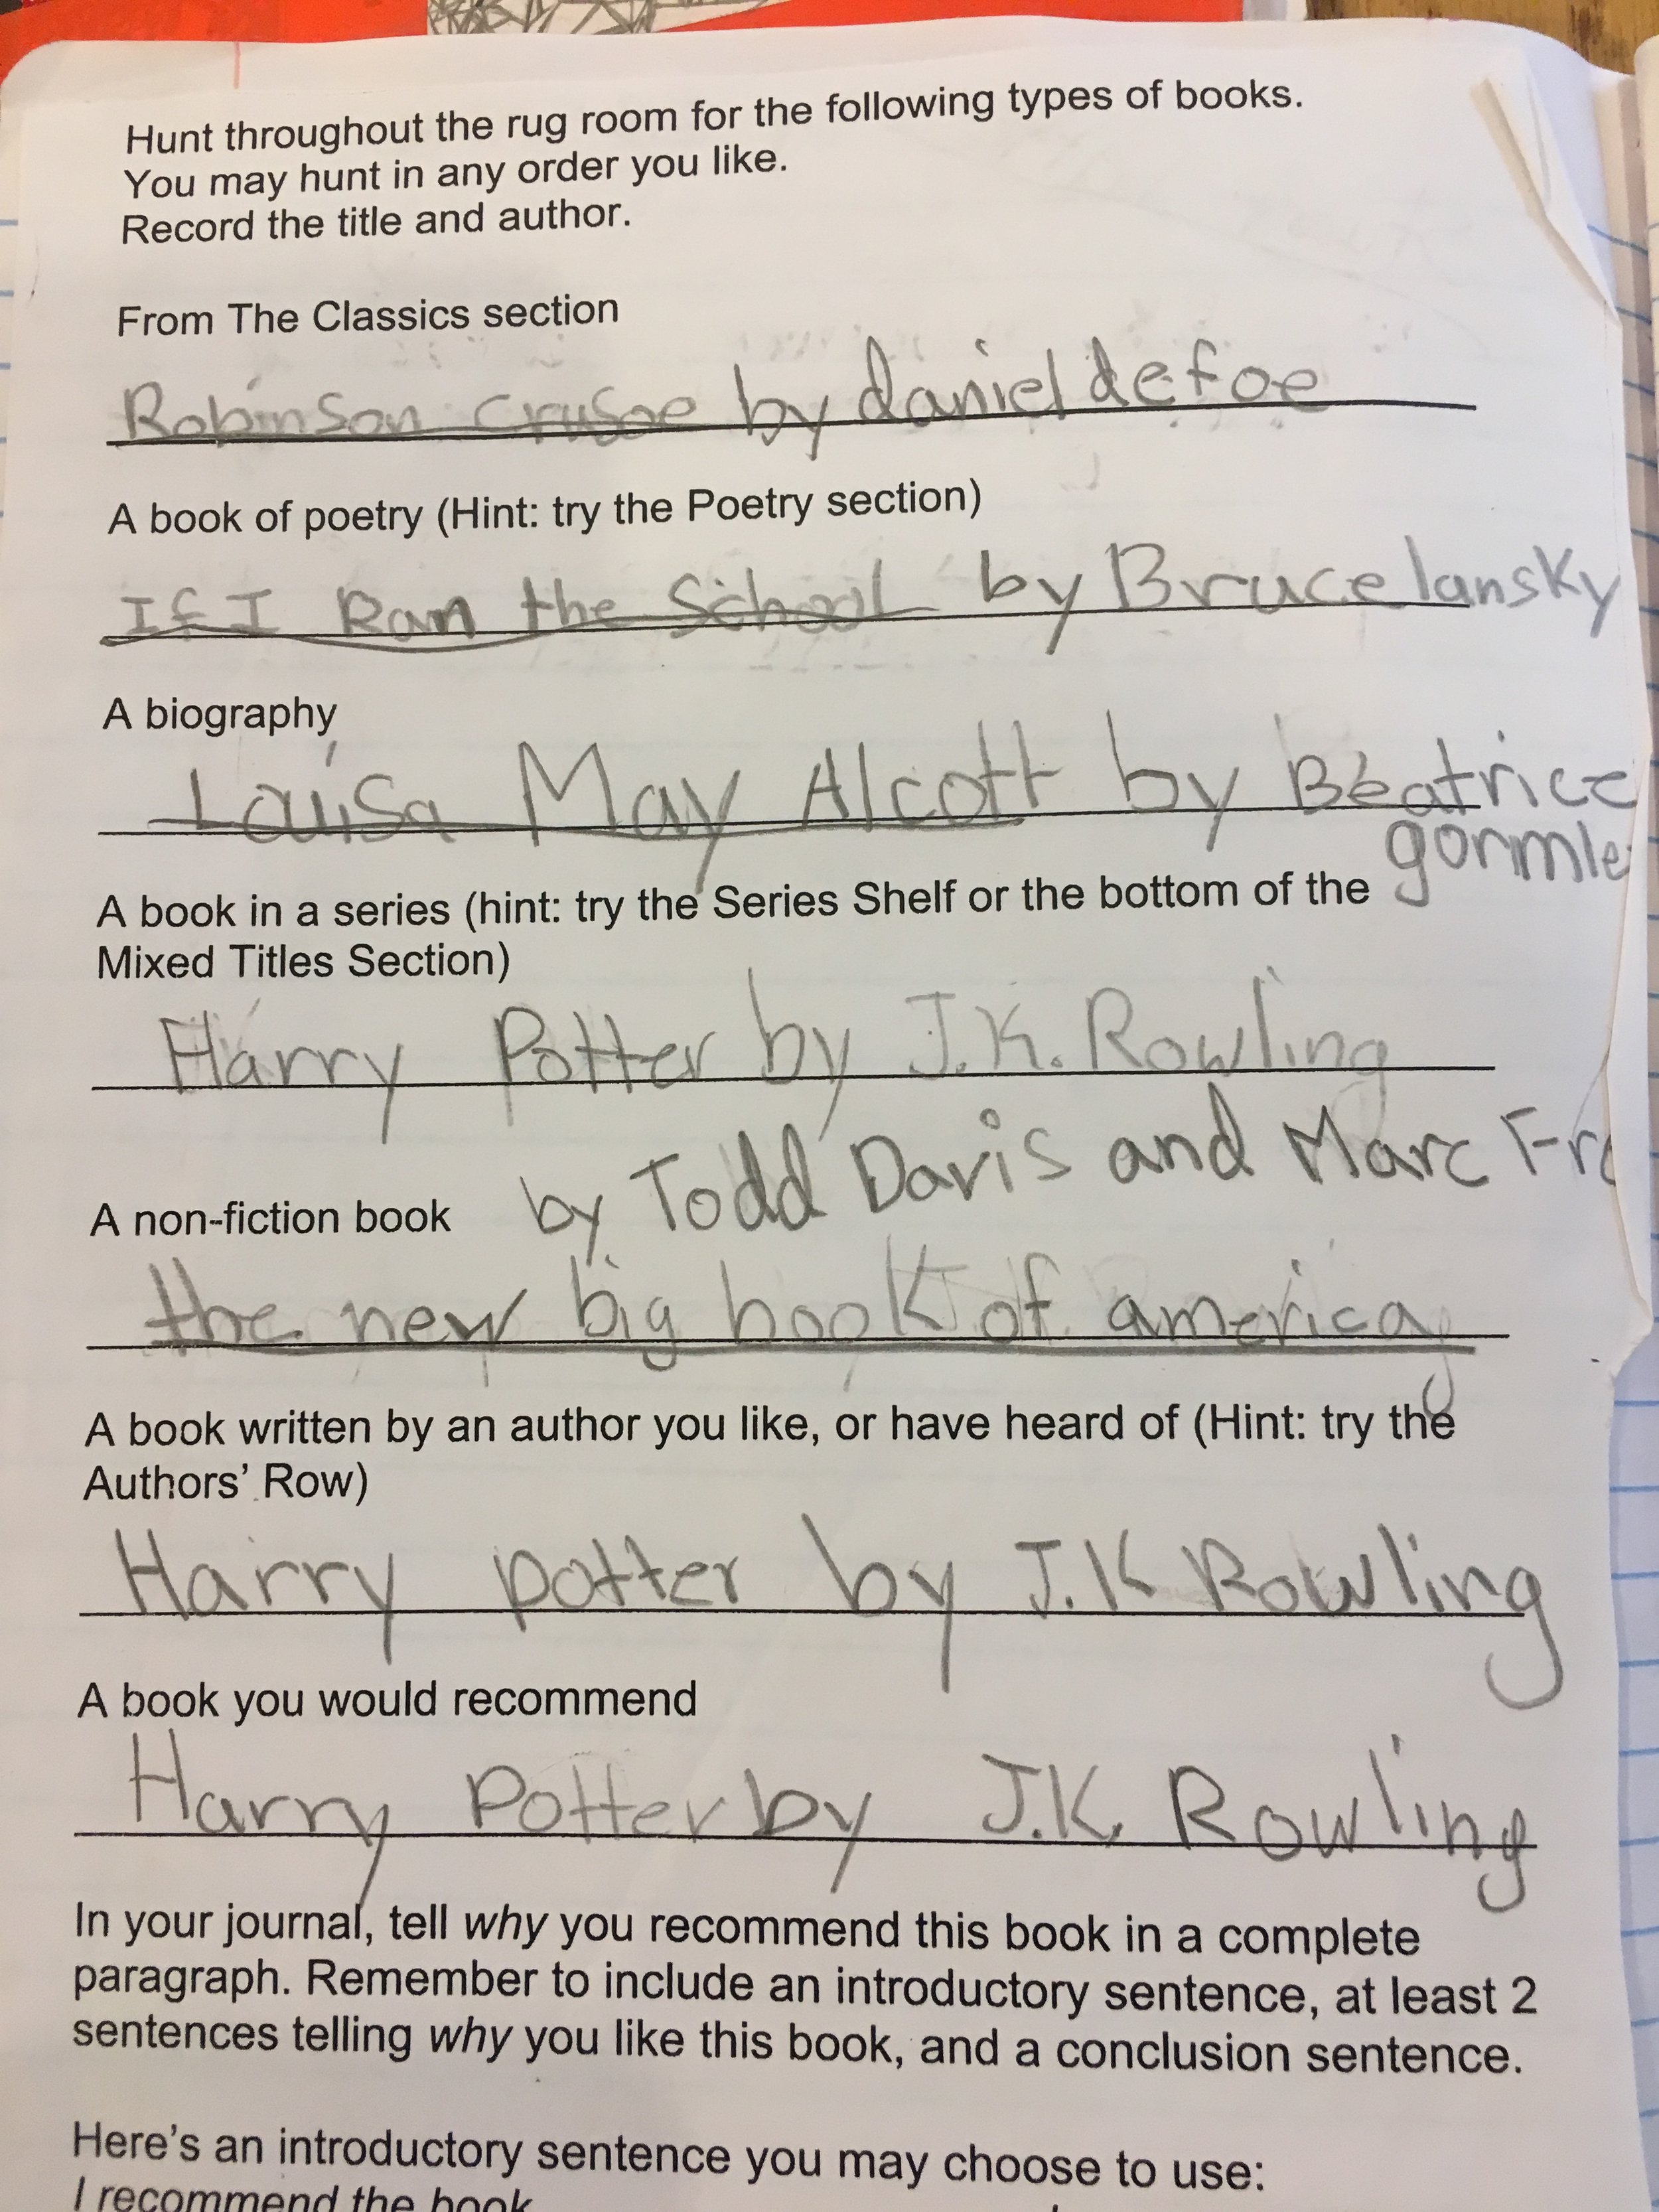 Hunt throughout the rug room for the following types of books.
You may hunt in any order you like.
Record the title and author.
From The Classics section
Robinson Crusoe by daniel defoe
A book of poetry (Hint: try the Poetry section)
If I Ran the School by Bruce lansky
A biography
Louisa May Alcott by Beatrice
gormle
A book in a series (hint: try the Series Shelf or the bottom of the
Mixed Titles Section)
Harry Potter by J.K. Rowling
by Todd Davis and Marc Fr
A non-fiction book
the new big book of america
A book written by an author you like, or have heard of (Hint: try the
Authors' Row)
Harry potter by J.K Rowling
A book you would recommend
Harry Potter by J.K. Rowling
In your journal, tell why you recommend this book in a complete
paragraph. Remember to include an introductory sentence, at least 2
sentences telling why you like this book, and a conclusion sentence.
Here's an introductory sentence you may choose to use:
I recommend the book